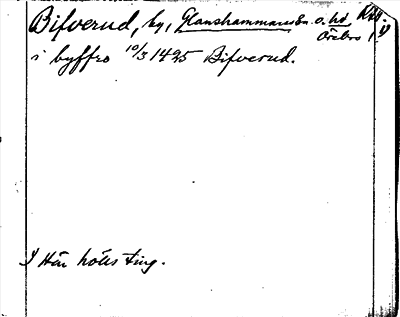 Bifverud, by, Glanshammars sn. o. hd
Örebro l.
i byffro 10/3 1425 Bifverud.
I Här hölls ting.